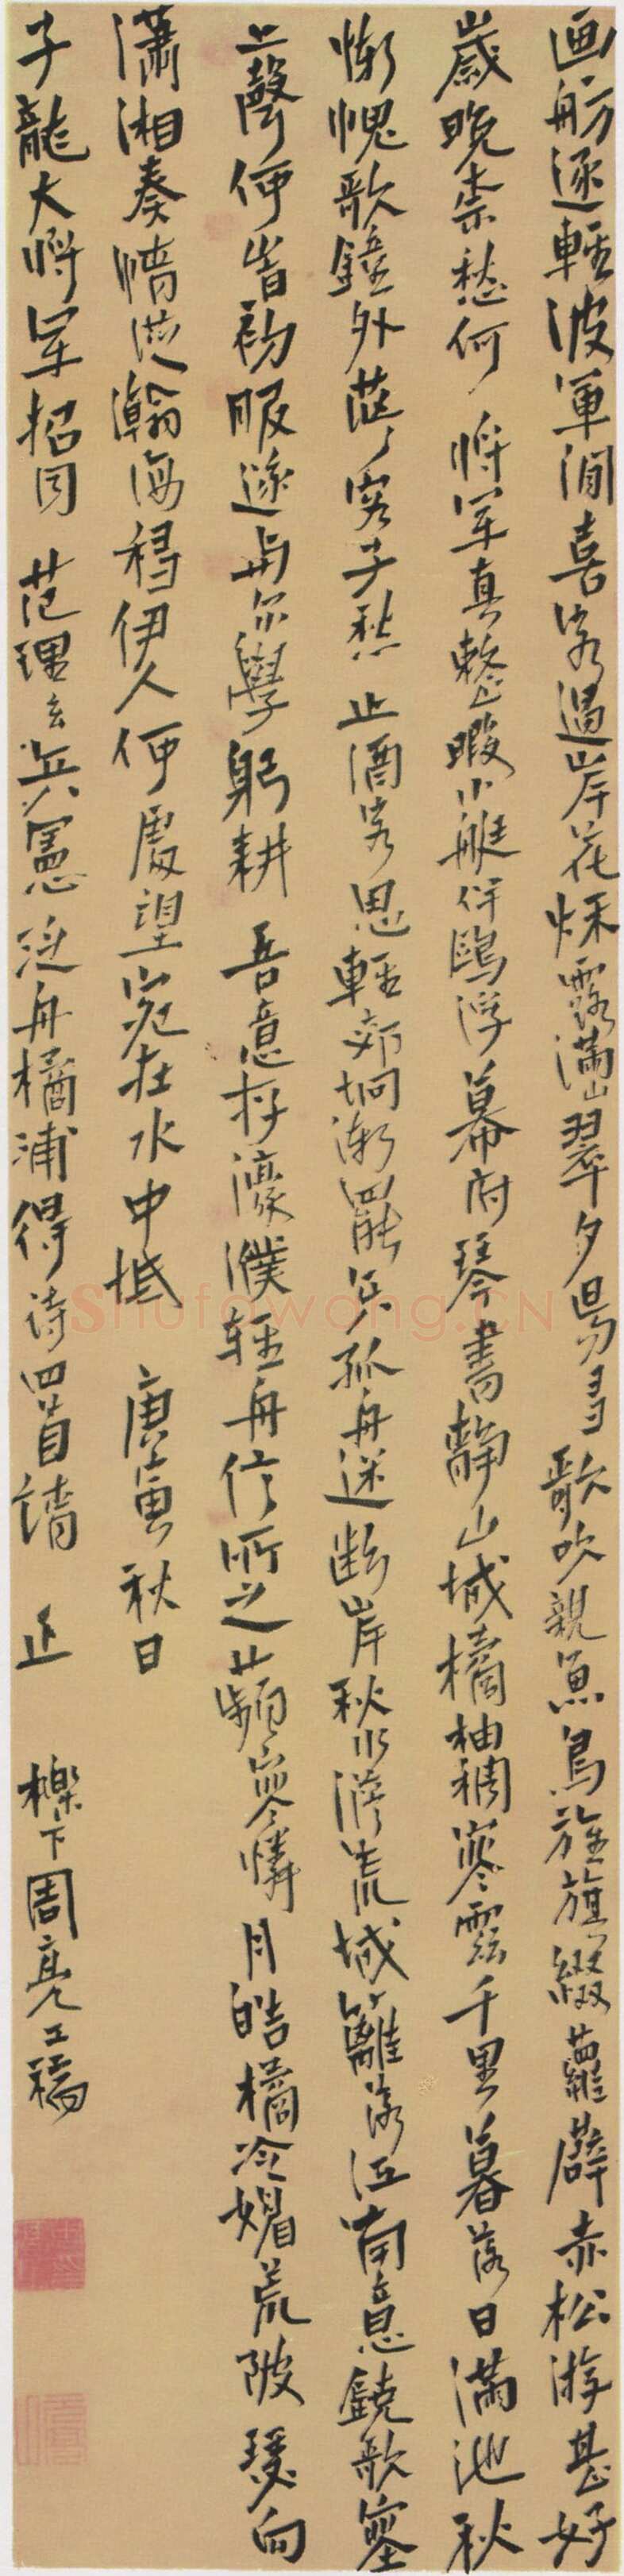 画舫逐輕波軍閒喜客過岸花煙露滿山翠夕陽多歌吹親魚鳥旌旗綴蘿薜赤松游甚好
歲晚柰愁何 將軍真整暇小艇伴鷗浮幕府琴書靜山城橘柚稠寒雲千里暮落日滿池秋
慚愧歌鐘外茫々客子愁 止酒客思輕郊坰漸罷兵孤舟迷斷岸秋水濟荒城籬落江南意鐃歌塞
上聲何當初服遂與尔學躬耕 吾意存濠濮輕舟信所之蘋寒憐月皓橘冷媚荒陂瑟向
瀟湘奏情從瀚海移伊人何處望宛在水中坻 庚寅秋日
子龍大將軍招同 范理玄兵憲泛舟橘浦得詩四首請 正 櫟下周亮工稿
Shufawang.CN